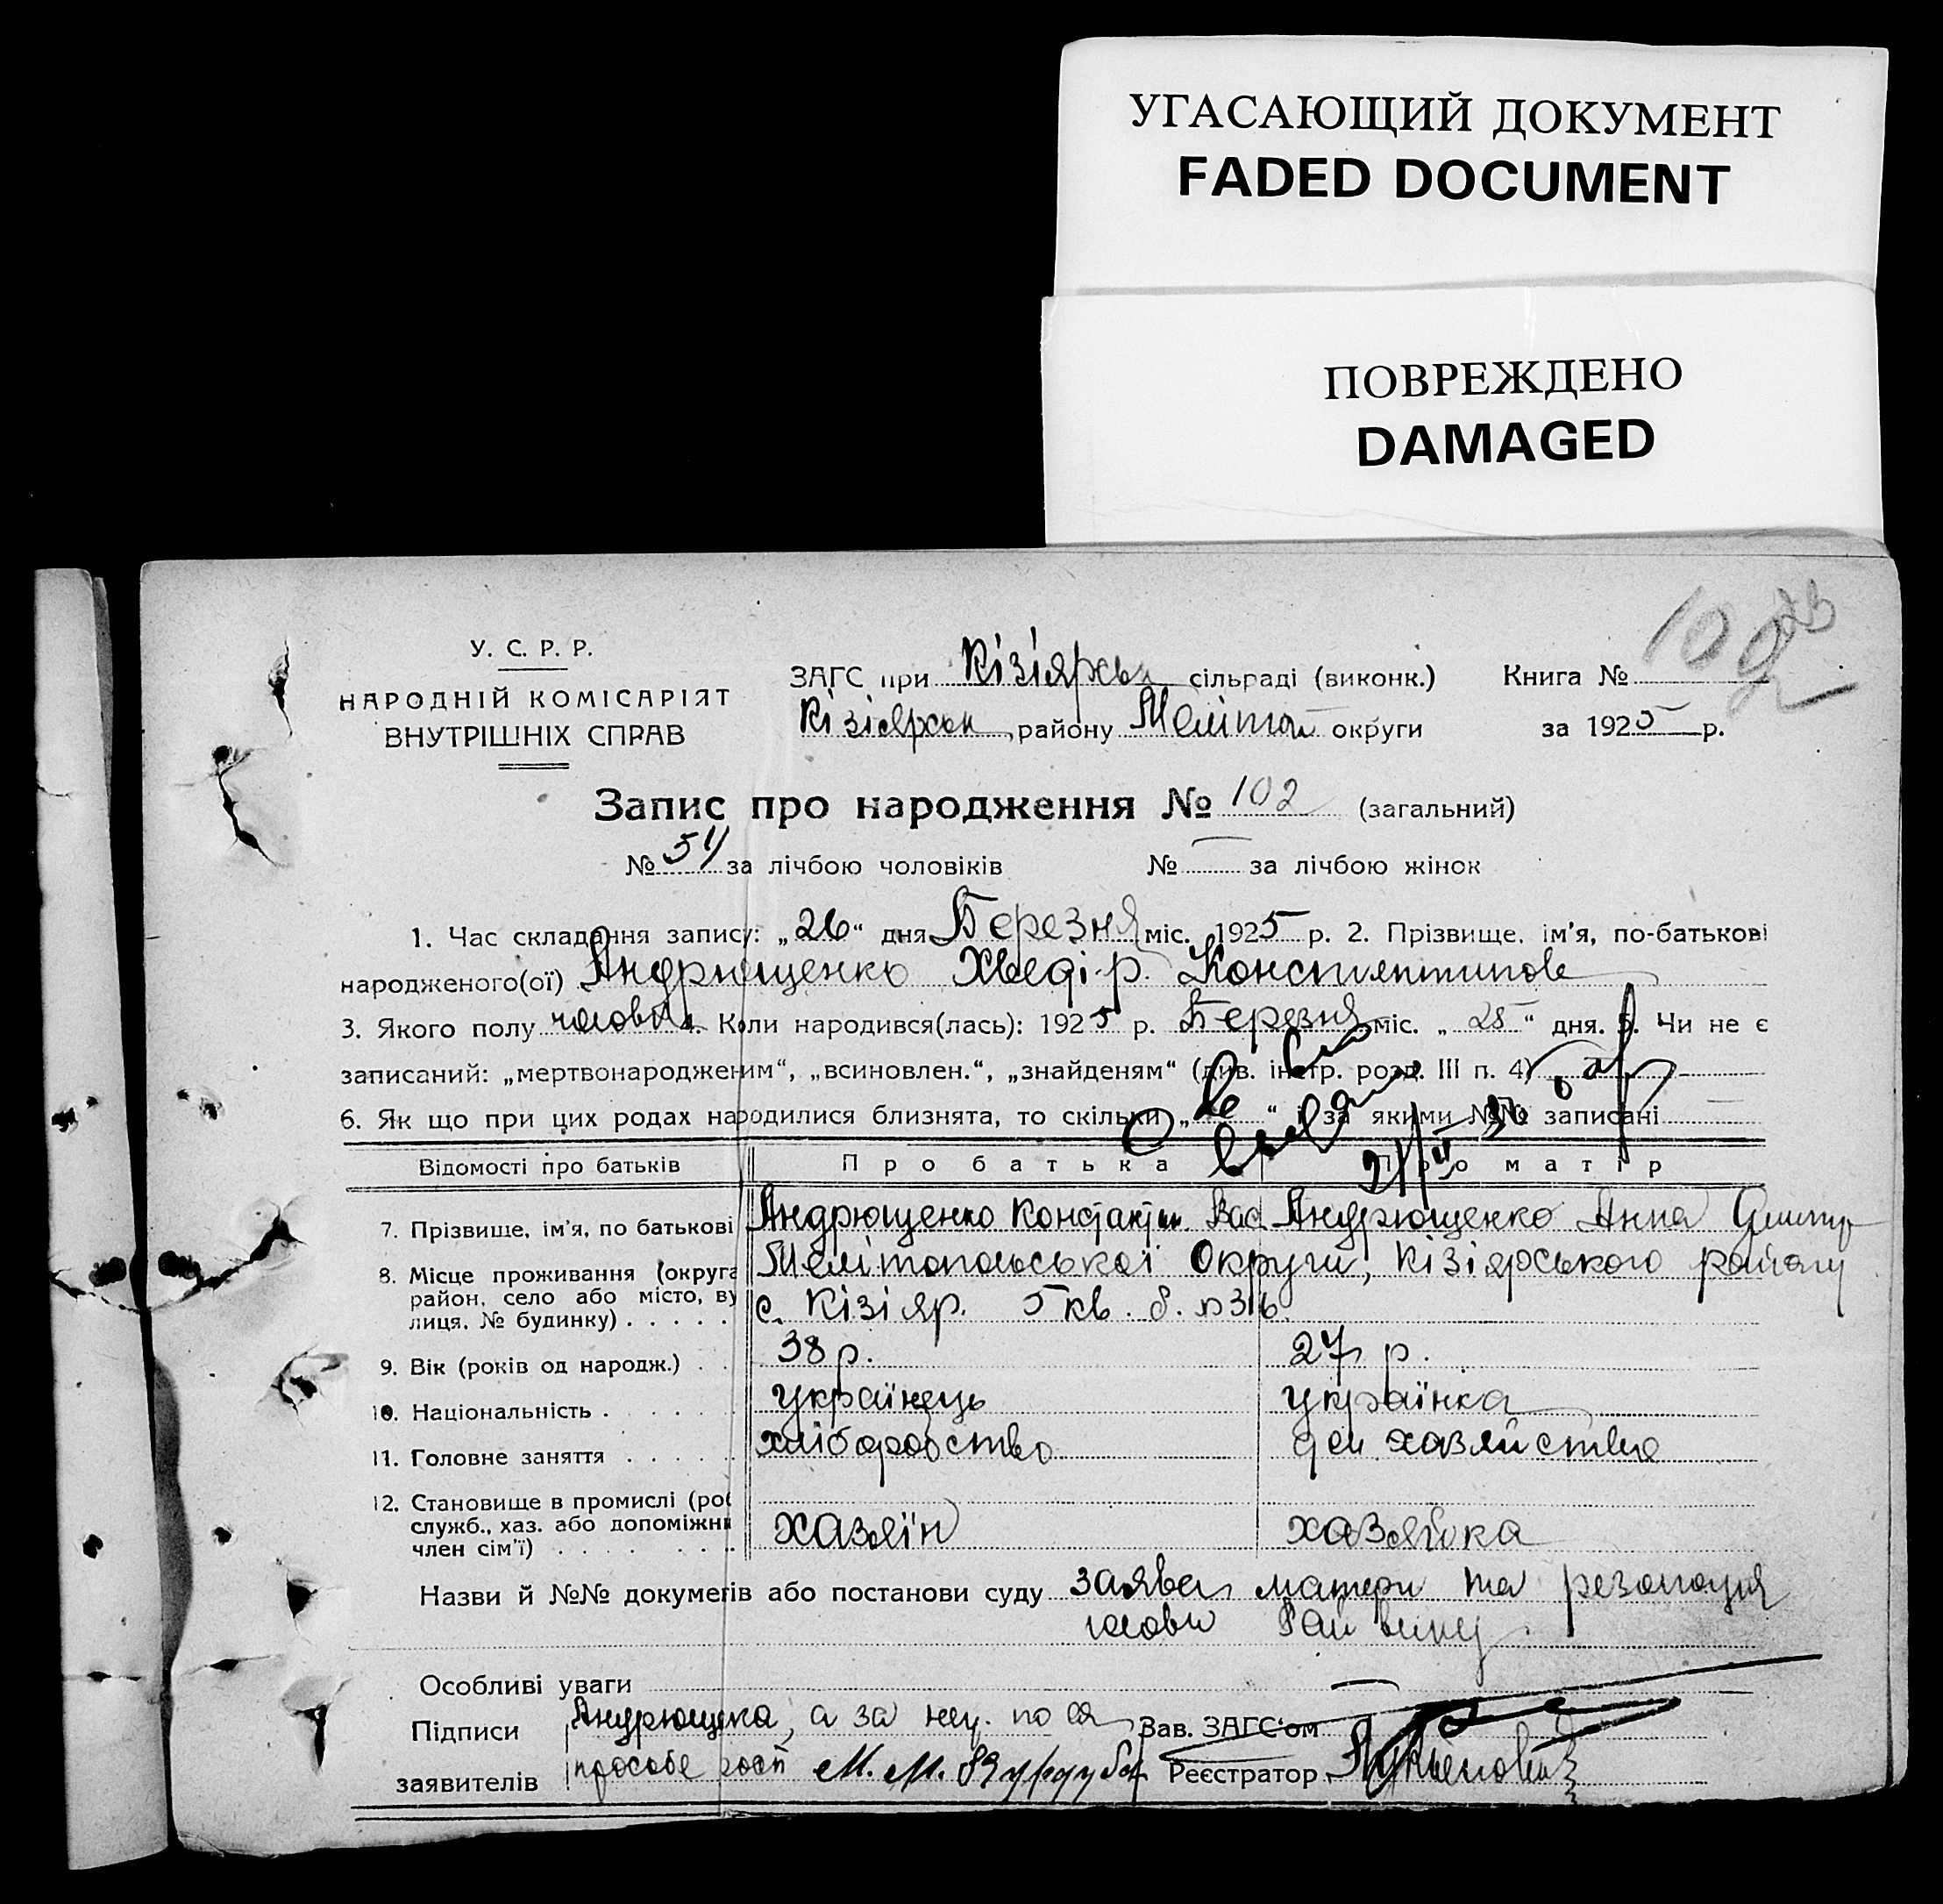 УГАСАЮЩИЙ ДОКУМЕНТ
FADED DOCUMENT
ПОВРЕЖДЕНО
DAMAGED
У. С. Р. Р.
НАРОДНІЙ КОМІСАРІЯТ
ВНУТРІШНІХ СПРАВ
ЗАГС при Кізіярськ сільраді (виконк.)
Кізіярськ району Меліто округи
Книга №
за 1925 р.
Запис про народження № 102 (загальний)
№ 51 за лічбою чоловіків № — за лічбою жінок
1. Час складання запису: „26“ дня Березня міс. 1925 р. 2. Прізвище, ім'я, по-батькові
народженого(ої) Андрющенко Хведі-р. Константинов
3. Якого полу чолов 4. Коли народився(лась): 1925 р. Березня міс. „25“ дня. 5. Чи не є
записаний: „мертвонародженим“, „всиновлен.“, „знайденям“ (див. інстр. розд. III п. 4)
6. Як що при цих родах народилися близнята, то скільки „ “ і за якими №№ записані
Відомості про батьків Про батька Про матір
7. Прізвище, ім'я, по батькові Андрющенко Константин Вас Андрющенко Анна Дмитр
8. Місце проживання (округа Мелітопольської Округи, Кізіярського району
район, село або місто, ву
лиця, № будинку) с. Кізіяр. 5 кв. д. №
9. Вік (років од народж.) 38 р. 27 р.
10. Національність українець українка
11. Головне заняття хліборобство дом хазяйство
12. Становище в промислі (роб
служб., хаз. або допоміжни
член сім'ї) хазяїн хазяйка
Назви й №№ документів або постанови суду заява матери та резолюция
голови Рай
Особливі уваги —
Підписи Андрющенка, а за неу. по ея Зав. ЗАГС'ом
заявителів прозобе М. М. Реєстратор